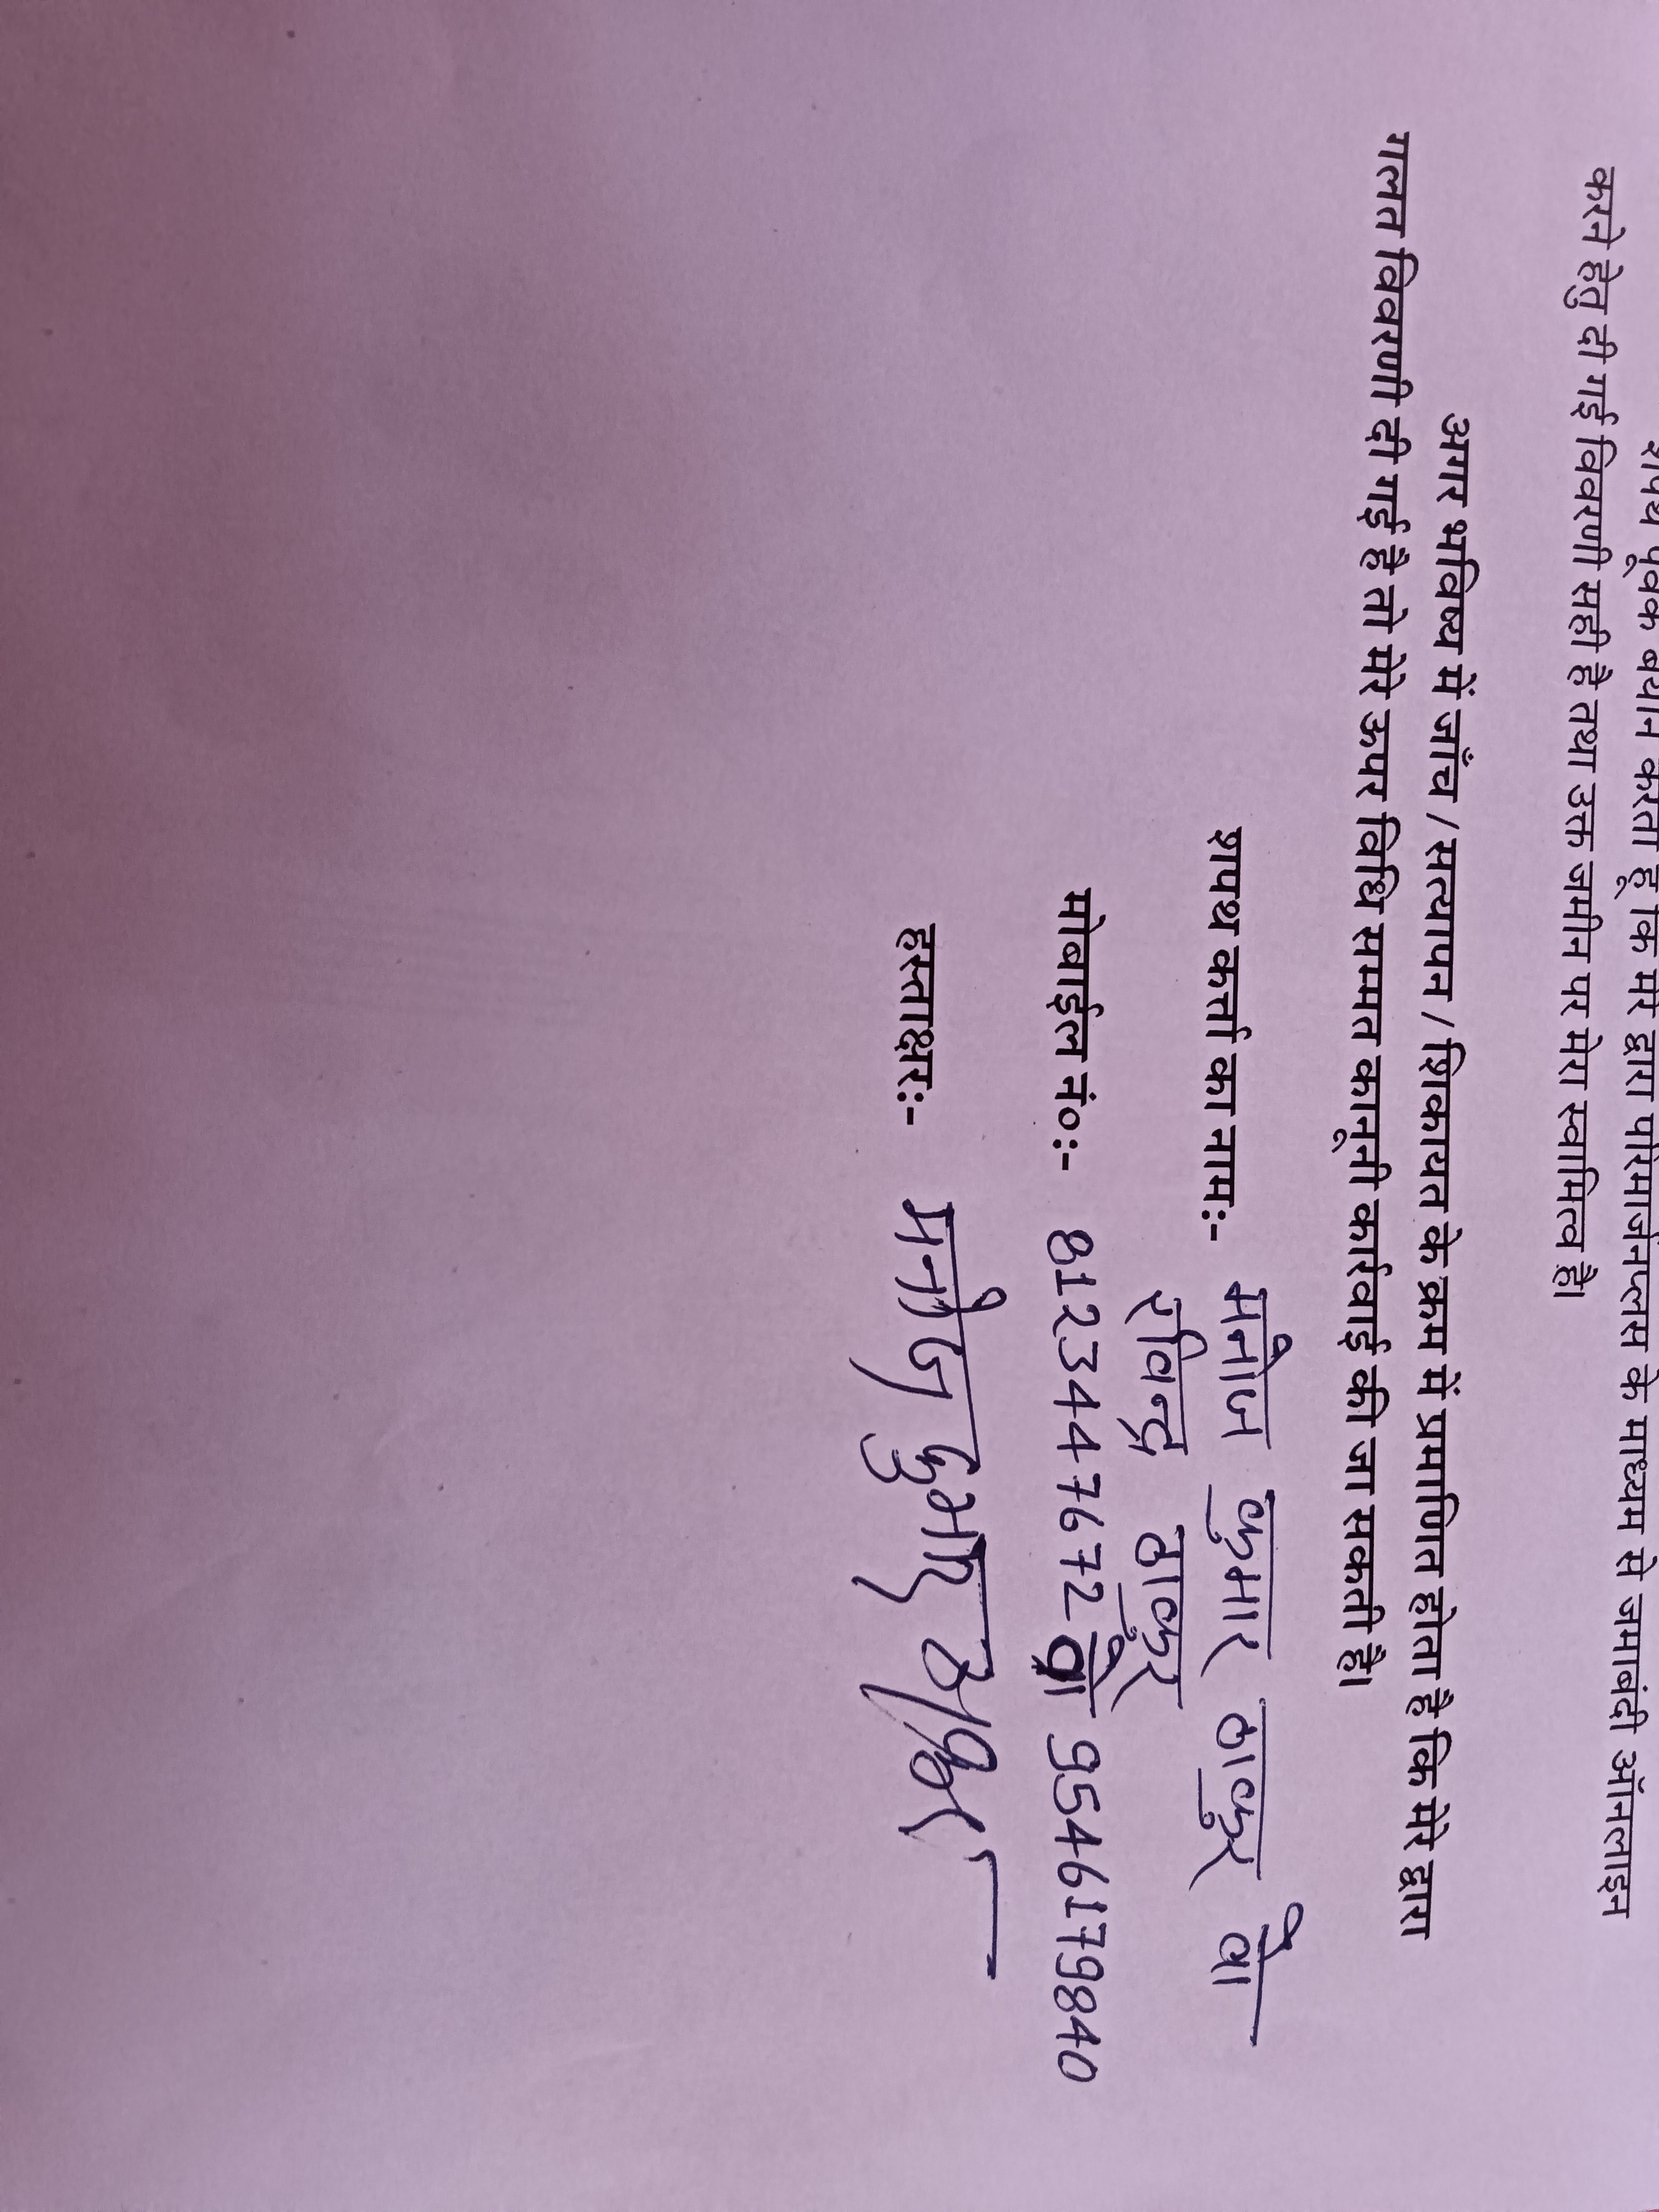 शपथ पूर्वक बयान करता हूँ कि मेरे द्वारा परिमार्जनप्लस के माध्यम से जमाबंदी ऑनलाइन
करने हेतु दी गई विवरणी सही है तथा उक्त जमीन पर मेरा स्वामित्व है।
अगर भविष्य में जाँच / सत्यापन / शिकायत के क्रम में प्रमाणित होता है कि मेरे द्वारा
गलत विवरणी दी गई है तो मेरे ऊपर विधि सम्मत कानूनी कार्रवाई की जा सकती है।
शपथ कर्त्ता का नामः- मनोज कुमार ठाकुर वो
रविन्द्र ठाकुर
मोबाईल नं०ः- 8123447672 वो 9546179840
हस्ताक्षरः- मनोज कुमार ठाकुर